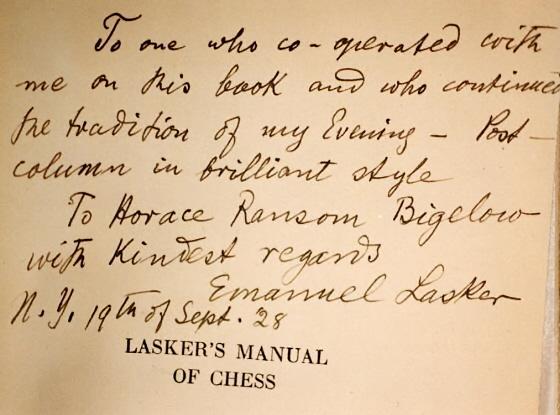 To one who co-operated with
me on this book and who continued
the tradition of my Evening - Post-
column in brilliant style
To Horace Ransom Bigelow
with Kindest regards
Emanuel Lasker
N.Y. 19th of Sept. '28
LASKER'S MANUAL
OF CHESS